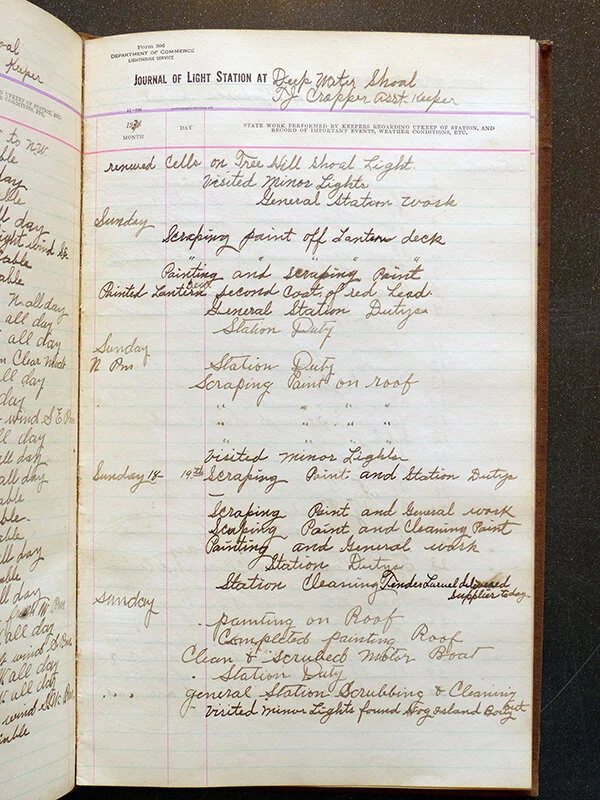 oal
Keeper
to N.W.
able
day
able
ll day
able
able
N. all day
all day
all day
Clear
all day
day
wind S E Pm
all day
all day
all day
able
able
ble.
all day
day
all day
all day
able
Form 306
DEPARTMENT OF COMMERCE
LIGHTHOUSE SERVICE
JOURNAL OF LIGHT STATION AT Deep Water Shoal
T.J. Cropper Asst. Keeper
MONTH DAY STATE WORK PERFORMED BY KEEPERS REGARDING UPKEEP OF STATION, AND RECORD OF IMPORTANT EVENTS, WEATHER CONDITIONS, ETC.
renewed Cells on Tree Hill Shoal Light.
Visited Minor Lights
General Station work
Sunday
Scraping paint off Lantern deck
" " " "
Painting and scraping Paint
Painted Lantern deck second Coat of red Lead.
General Station Dutys
Station Duty
Sunday
N Pm Station Duty
Scraping Paint on roof
" " " "
" " " "
" " " "
Visited minor Lights
Sunday 18- 19th Scraping Paint and Station Dutys
Scraping Paint and General work
Scraping Paint and Cleaning Paint
Painting and General work
Station Dutys
Station Cleaning Tender Laurel delivered
supplies today.
Sunday
painting on Roof
Completed painting Roof
Clean & Scrubed Motor Boat
Station Duty
general Station Scrubbing & Cleaning
Visited Minor Lights found Hog Island Bouy out